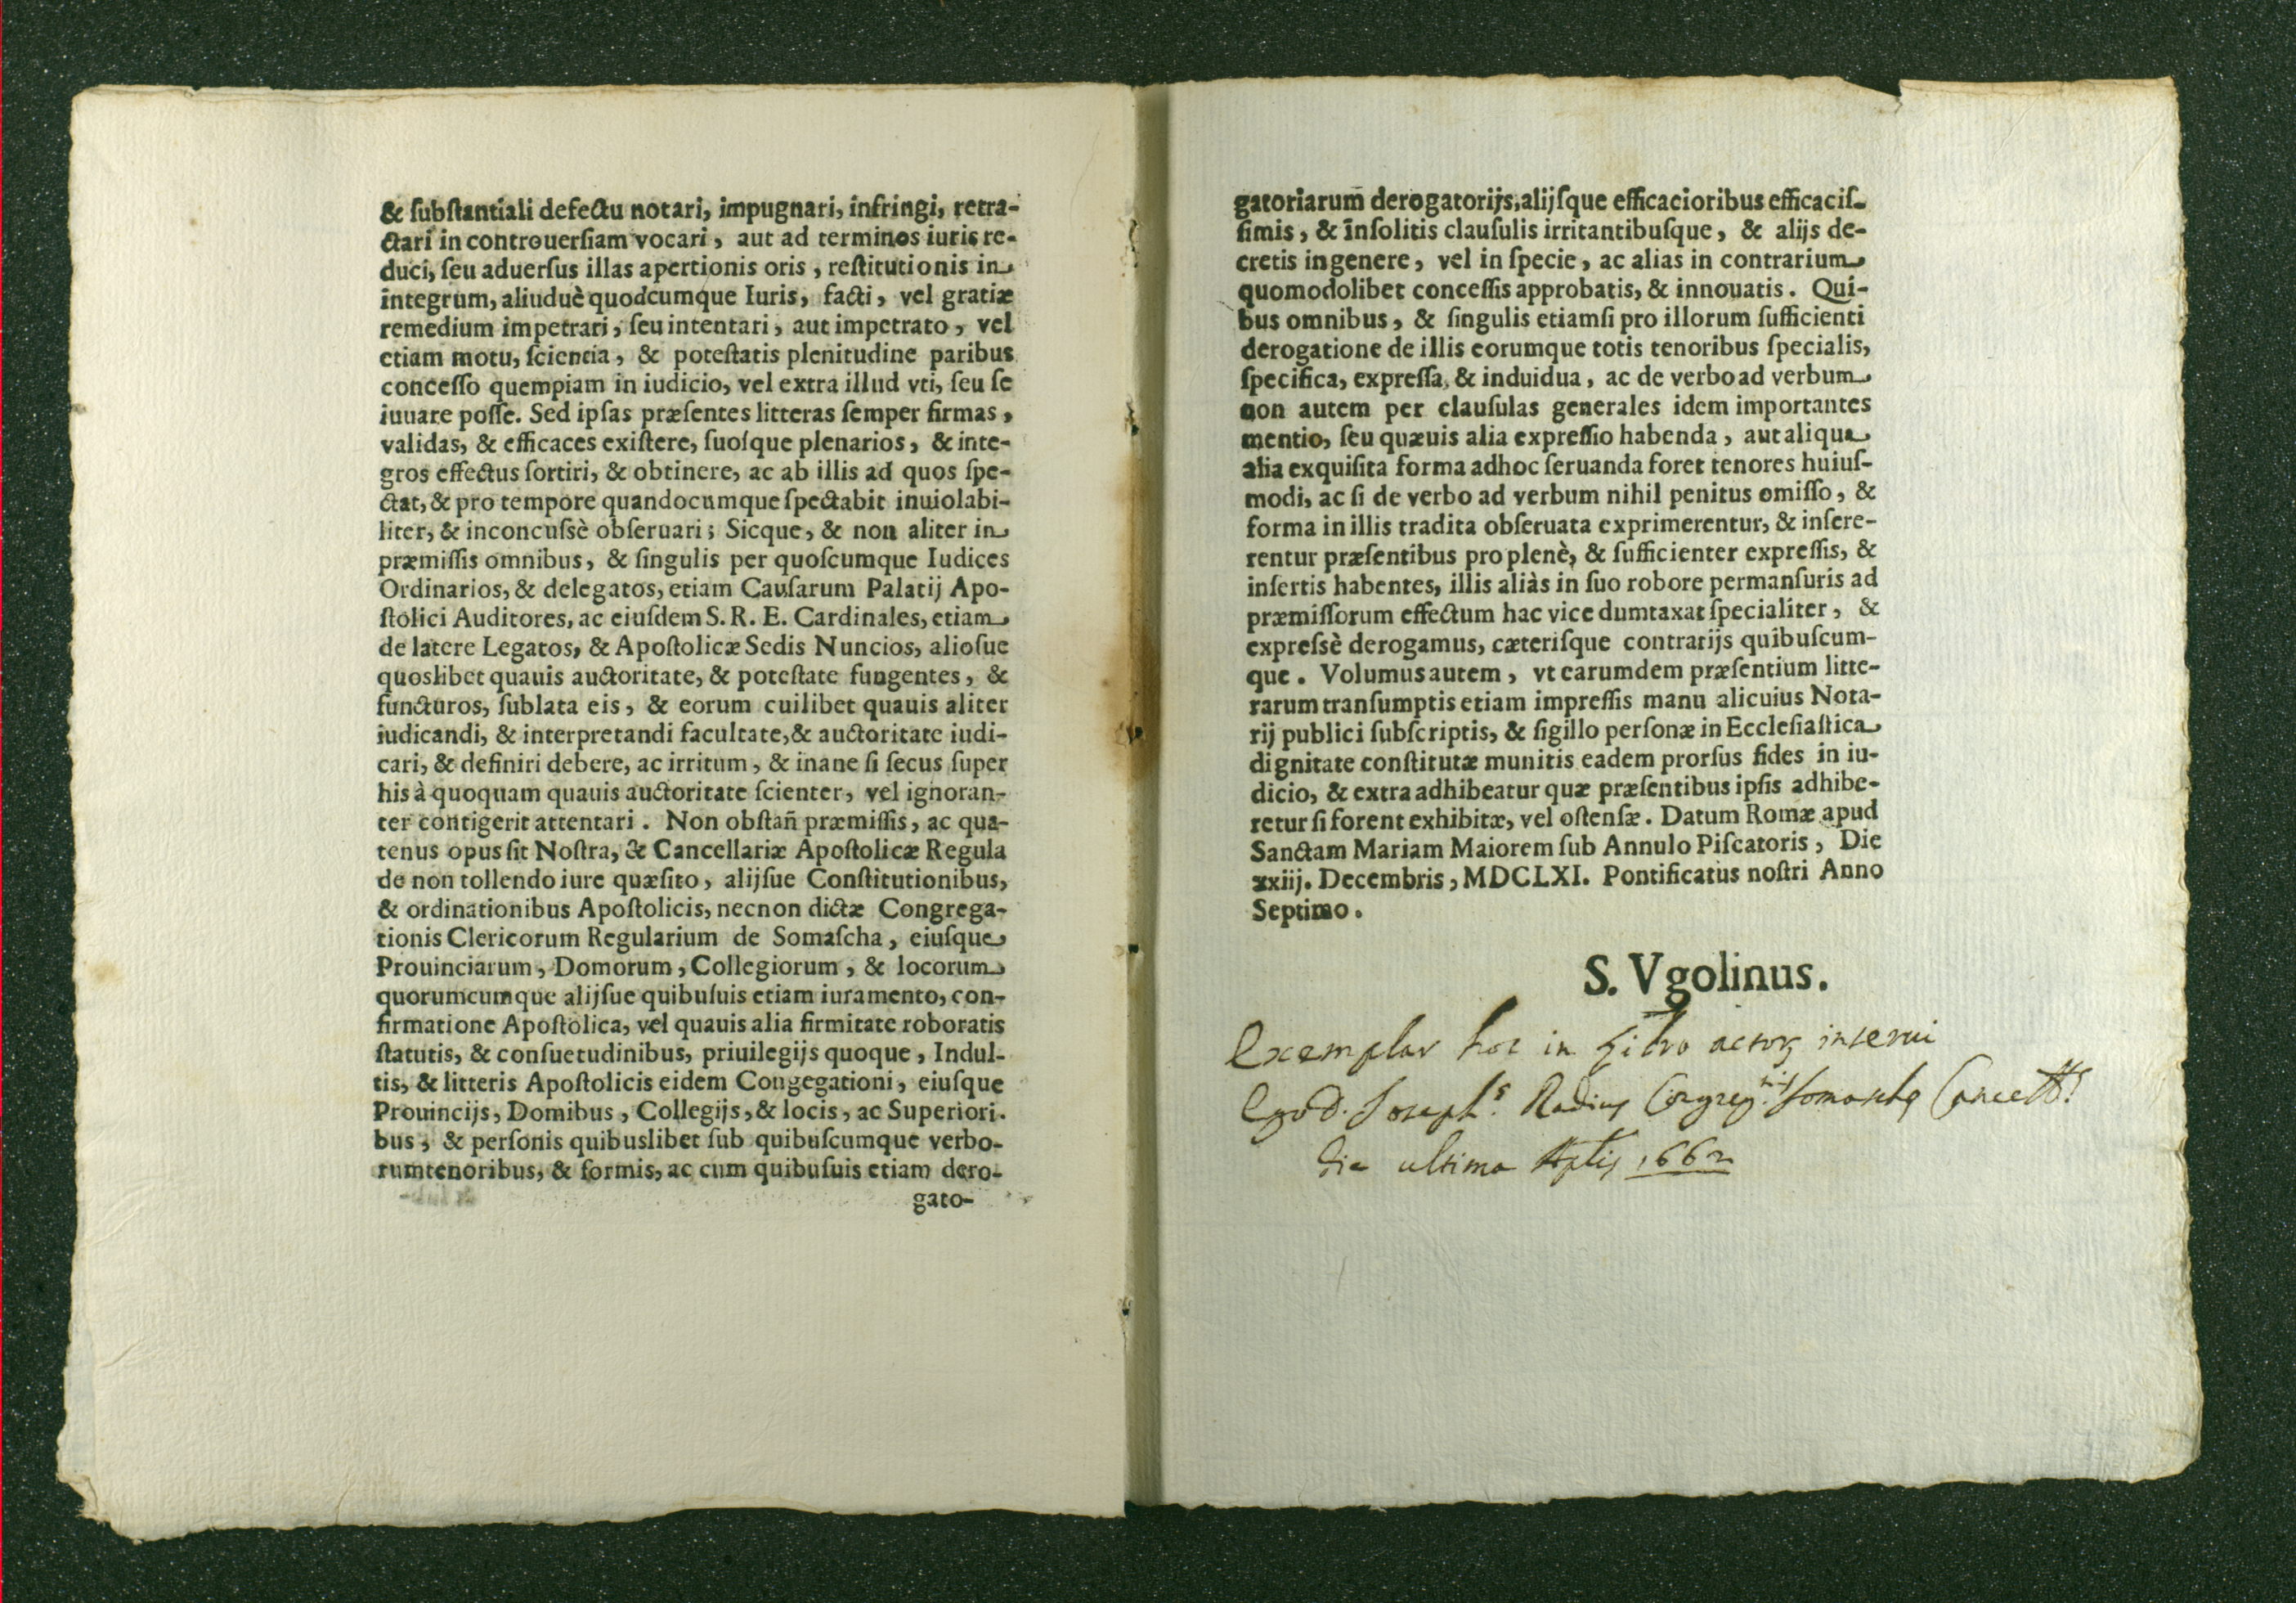 & ſubſtantiali defectu notari, impugnari, infringi, retra-
ctari in controuerſiam vocari, aut ad terminos iuris re-
duci, ſeu aduerſus illas apertionis oris, reſtitutionis in
integrum, aliuduè quodcumque Iuris, facti, vel gratiæ
remedium impetrari, ſeu intentari, aut impetrato, vel
etiam motu, ſcientia, & poteſtatis plenitudine paribus
conceſſo quempiam in iudicio, vel extra illud vti, ſeu ſe
iuuare poſſe. Sed ipſas præſentes litteras ſemper firmas,
validas, & efficaces exiſtere, ſuoſque plenarios, & inte-
gros effectus ſortiri, & obtinere, ac ab illis ad quos ſpe-
ctat, & pro tempore quandocumque ſpectabit inuiolabi-
liter, & inconcuſsè obſeruari; Sicque, & non aliter in
præmiſſis omnibus, & ſingulis per quoſcumque Iudices
Ordinarios, & delegatos, etiam Cauſarum Palatij Apo-
ſtolici Auditores, ac eiuſdem S. R. E. Cardinales, etiam
de latere Legatos, & Apoſtolicæ Sedis Nuncios, alioſue
quoslibet quauis auctoritate, & poteſtate fungentes, &
functuros, ſublata eis, & eorum cuilibet quauis aliter
iudicandi, & interpretandi facultate, & auctoritate iudi-
cari, & definiri debere, ac irritum, & inane ſi ſecus ſuper
his à quoquam quauis auctoritate ſcienter, vel ignoran-
ter contigerit attentari. Non obſtañ præmiſſis, ac qua-
tenus opus ſit Noſtra, & Cancellariæ Apoſtolicæ Regula
de non tollendo iure quæſito, alijſue Conſtitutionibus,
& ordinationibus Apoſtolicis, necnon dictæ Congrega-
tionis Clericorum Regularium de Somaſcha, eiuſque
Prouinciarum, Domorum, Collegiorum, & locorum
quorumcumque alijſue quibuſuis etiam iuramento, con-
firmatione Apoſtolica, vel quauis alia firmitate roboratis
ſtatutis, & conſuetudinibus, priuilegijs quoque, Indul-
tis, & litteris Apoſtolicis eidem Congegationi, eiuſque
Prouincijs, Domibus, Collegijs, & locis, ac Superiori.
bus, & perſonis quibuslibet ſub quibuſcumque verbo-
rumtenoribus, & formis, ac cum quibuſuis etiam dero-
gato-
gatoriarum̃ derogatorijs, alijſque efficacioribus efficaciſ-
ſimis, & inſolitis clauſulis irritantibuſque, & alijs de-
cretis in genere, vel in ſpecie, ac alias in contrarium
quomodolibet conceſſis approbatis, & innouatis. Qui-
bus omnibus, & ſingulis etiamſi pro illorum ſufficienti
derogatione de illis eorumque totis tenoribus ſpecialis,
ſpecifica, expreſſa, & induidua, ac de verbo ad verbum
non autem per clauſulas generales idem importantes
mentio, ſeu quæuis alia expreſſio habenda, aut aliqua
alia exquiſita forma adhoc ſeruanda foret tenores huiuſ-
modi, ac ſi de verbo ad verbum nihil penitus omiſſo, &
forma in illis tradita obſeruata exprimerentur, & inſere-
rentur præſentibus pro plenè, & ſufficienter expreſſis, &
inſertis habentes, illis aliàs in ſuo robore permanſuris ad
præmiſſorum effectum hac vice dumtaxat ſpecialiter, &
expreſsè derogamus, cæteriſque contrarijs quibuſcum-
que. Volumus autem, vt earumdem præſentium litte-
rarum tranſumptis etiam impreſſis manu alicuius Nota-
rij publici ſubſcriptis, & ſigillo perſonæ in Eccleſiaſtica
dignitate conſtitutæ munitis eadem prorſus fides in iu-
dicio, & extra adhibeatur quæ præſentibus ipſis adhibe-
retur ſi forent exhibitæ, vel oſtenſæ. Datum Romæ apud
Sanctam Mariam Maiorem ſub Annulo Piſcatoris, Die
xxiij. Decembris, MDCLXI. Pontificatus noſtri Anno
Septimo.
S. Vgolinus.
Exemplar hoc in Libro actorꝝ inserui
Ego D. Joseph.s Radius Congreg.nis Somaschę Cancell.s
die ultima 1662